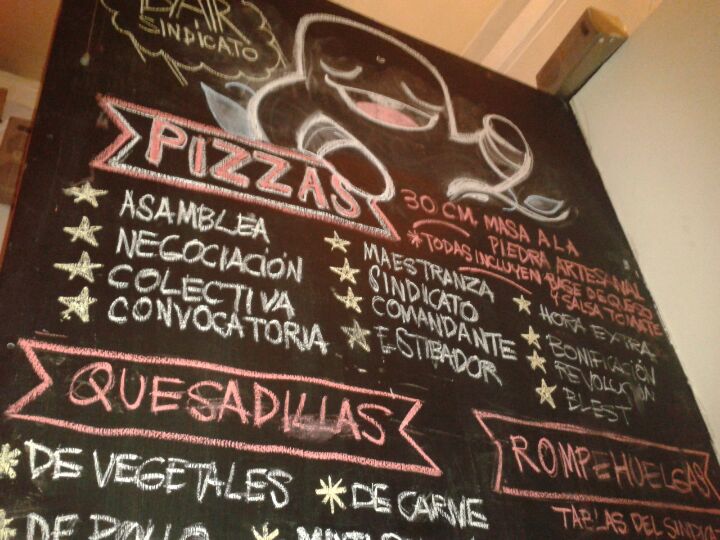 BAR
SINDICATO
PIZZAS
30 CM. MASA A LA
PIEDRA ARTESANAL
*TODAS INCLUYEN BASE DE QUESO
Y SALSA TOMATE
★ ASAMBLEA
★ NEGOCIACIÓN
★ COLECTIVA
★ CONVOCATORIA
★ MAESTRANZA
★ SINDICATO
★ COMANDANTE
★ ESTIBADOR
★ HORA EXTRA
★ BONIFICACIÓN
★ REVOLUCIÓN
★ BLEST
QUESADILLAS
* DE VEGETALES
* DE CARNE
* DE POLLO
ROMPEHUELGAS
TABLAS DEL